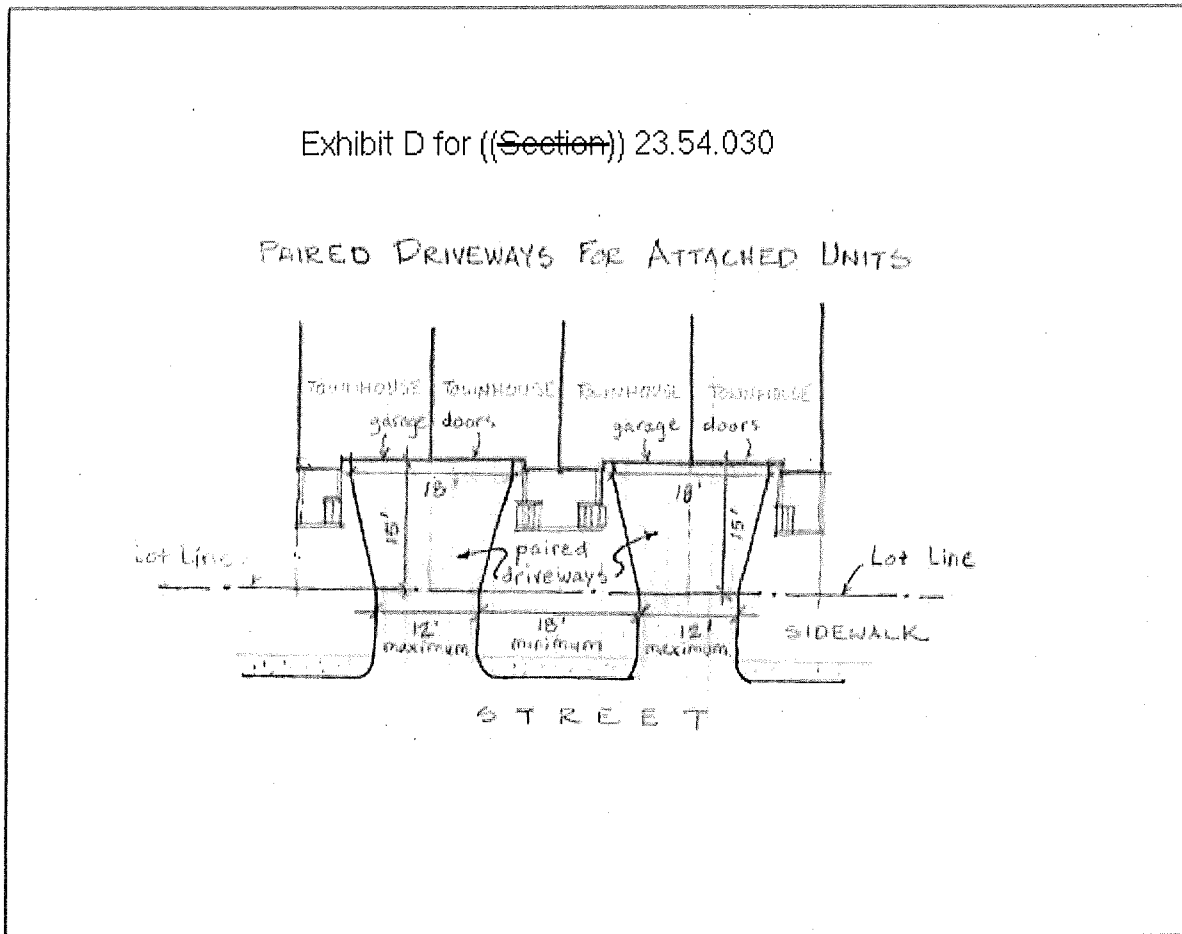 Exhibit D for ((Section)) 23.54.030
PAIRED DRIVEWAYS FOR ATTACHED UNITS
TOWNHOUSE TOWNHOUSE TOWNHOUSE TOWNHOUSE
garage doors garage doors
18' 18'
15' 15'
paired
driveways
Lot Line Lot Line
12' 18' 12'
maximum minimum maximum
SIDEWALK
STREET